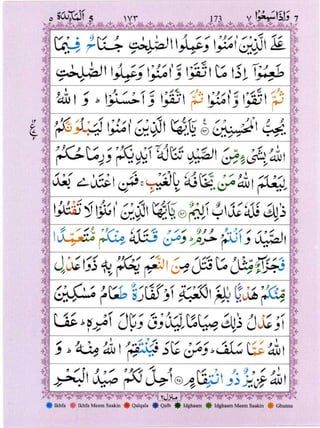 المآئدة ٥ 5 ١٧٣ 173 ٧ واذا سمعوا 7
عَلَى الَّذِيْنَ اٰمَنُوْا وَعَمِلُوا الصّٰلِحٰتِ جُنَاحٌ فِيْمَا
طَعِمُوْۤا اِذَا مَا اتَّقَوْا وَّ اٰمَنُوْا وَعَمِلُوا الصّٰلِحٰتِ
ثُمَّ اتَّقَوْا وَّ اٰمَنُوْا ثُمَّ اتَّقَوْا وَّ اَحْسَنُوْا ؕ وَ اللّٰهُ
يُحِبُّ الْمُحْسِنِيْنَ ۟ يٰۤاَيُّهَا الَّذِيْنَ اٰمَنُوْا لَيَبْلُوَنَّكُمُ
اللّٰهُ بِشَیْءٍ مِّنَ الصَّيْدِ تَنَالُهٗۤ اَيْدِيْكُمْ وَرِمَاحُكُمْ
لِيَعْلَمَ اللّٰهُ مَنْ يَّخَافُهٗ بِالْغَيْبِ ۚ فَمَنِ اعْتَدٰى بَعْدَ
ذٰلِكَ فَلَهٗ عَذَابٌ اَلِيْمٌ ۟ يٰۤاَيُّهَا الَّذِيْنَ اٰمَنُوْا لَا تَقْتُلُوا
الصَّيْدَ وَ اَنْتُمْ حُرُمٌ ؕ وَمَنْ قَتَلَهٗ مِنْكُمْ مُّتَعَمِّدًا
فَجَزَآءٌ مِّثْلُ مَا قَتَلَ مِنَ النَّعَمِ يَحْكُمُ بِهٖ ذَوَا عَدْلٍ
مِّنْكُمْ هَدْيًۢا بٰلِغَ الْكَعْبَةِ اَوْ كَفَّارَةٌ طَعَامُ مَسٰكِيْنَ
اَوْ عَدْلُ ذٰلِكَ صِيَامًا لِّيَذُوْقَ وَبَالَ اَمْرِهٖ ؕ عَفَا
اللّٰهُ عَمَّا سَلَفَ ؕ وَمَنْ عَادَ فَيَنْتَقِمُ اللّٰهُ مِنْهُ ؕ وَ
اللّٰهُ عَزِيْزٌ ذُو انْتِقَامٍ ۟ اُحِلَّ لَكُمْ صَيْدُ الْبَحْرِ
منزل ٢
Ikhfa Ikhfa Meem Saakin Qalqala Qalb Idghaam Idghaam Meem Saakin Ghunna